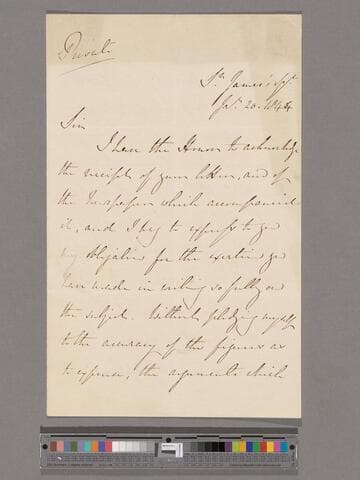 Private
St. James's Sqr.
Jany. 20. 1844
Sir
I have the Honor to acknowledge
the receipt of your letter, and of
the Newspaper which accompanied
it, and I beg to express to you
my obligation for the exertion you
have made in writing so fully on
the subject. Without pledging myself
to the accuracy of the figures as
to expense, the arguments which